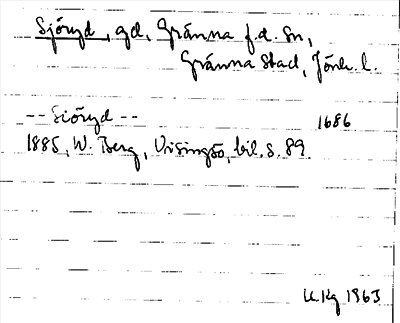 Sjöryd, gd, Gränna f.d. sn,
Gränna stad, Jönk. l.
-- Siöryd -- 1686
1885, W. Berg, Visingsö, bil. s. 89
U.Kg 1963